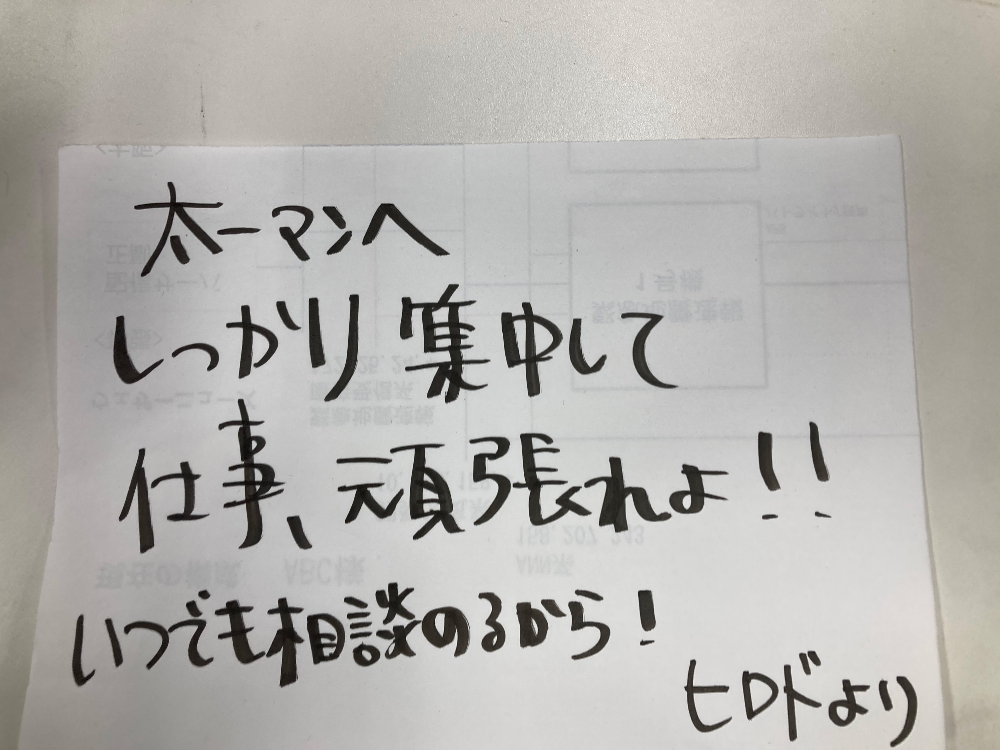 太一マンへ
しっかり集中して
仕事、頑張れよ!!
いつでも相談のるから!
ヒロドより